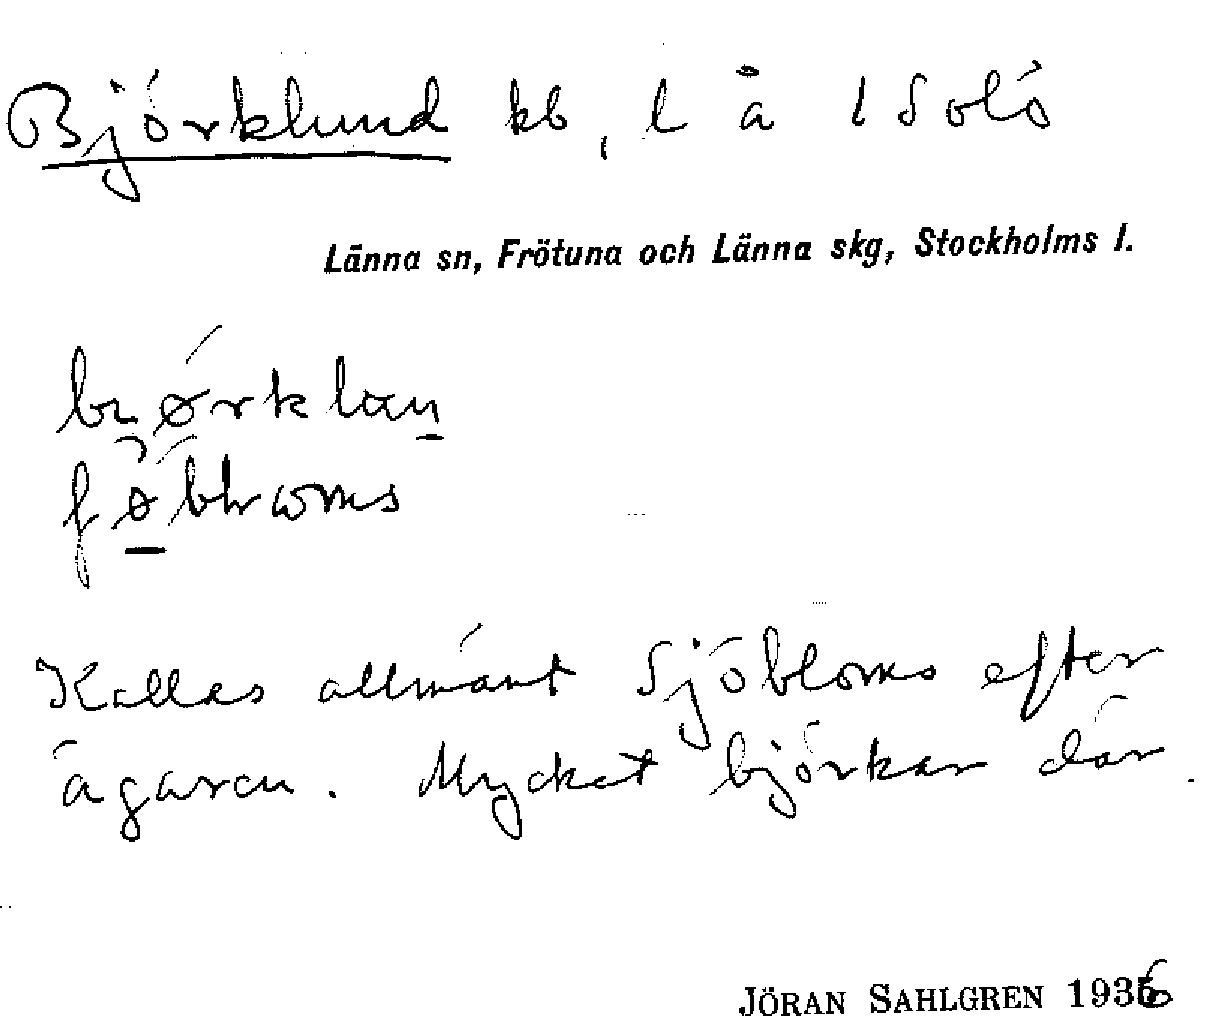 Björklund kb, l å 1 Solö
Länna sn, Frötuna och Länna skg, Stockholms l.
Kallas allmänt Sjöbloms efter
ägaren. Mycket björkar där.
JÖRAN SAHLGREN 1936